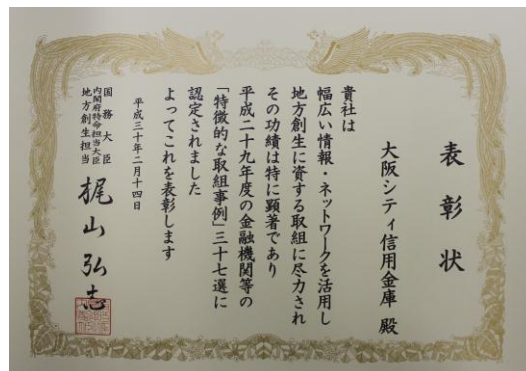 表彰状
大阪シティ信用金庫 殿
貴社は
幅広い情報・ネットワークを活用し
地方創生に資する取組に尽力され
その功績は特に顕著であり
平成二十九年度の金融機関等の
「特徴的な取組事例」三十七選に
認定されました
よってこれを表彰します
平成三十年二月十四日
国務大臣
内閣府特命担当大臣
地方創生担当
梶山弘志